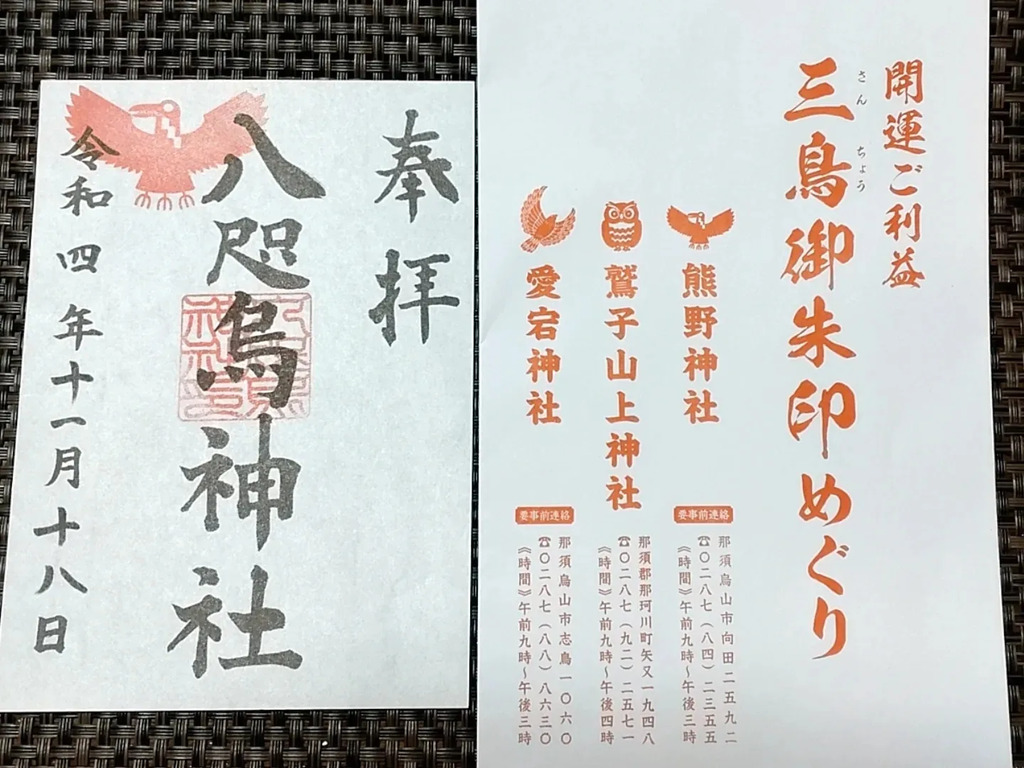 奉拝
八咫烏神社
令和四年十一月十八日
開運ご利益
三鳥御朱印めぐり
さんちょう
熊野神社
要事前連絡
那須烏山市向田二五九二
☎〇二八七(八四)二三五五
《時間》午前九時~午後三時
鷲子山上神社
那須郡那珂川町矢又一九四八
☎〇二八七(九二)二五七一
《時間》午前九時~午後四時
愛宕神社
要事前連絡
那須烏山市志鳥一〇六〇
☎〇二八七(八八)八六三〇
《時間》午前九時~午後三時